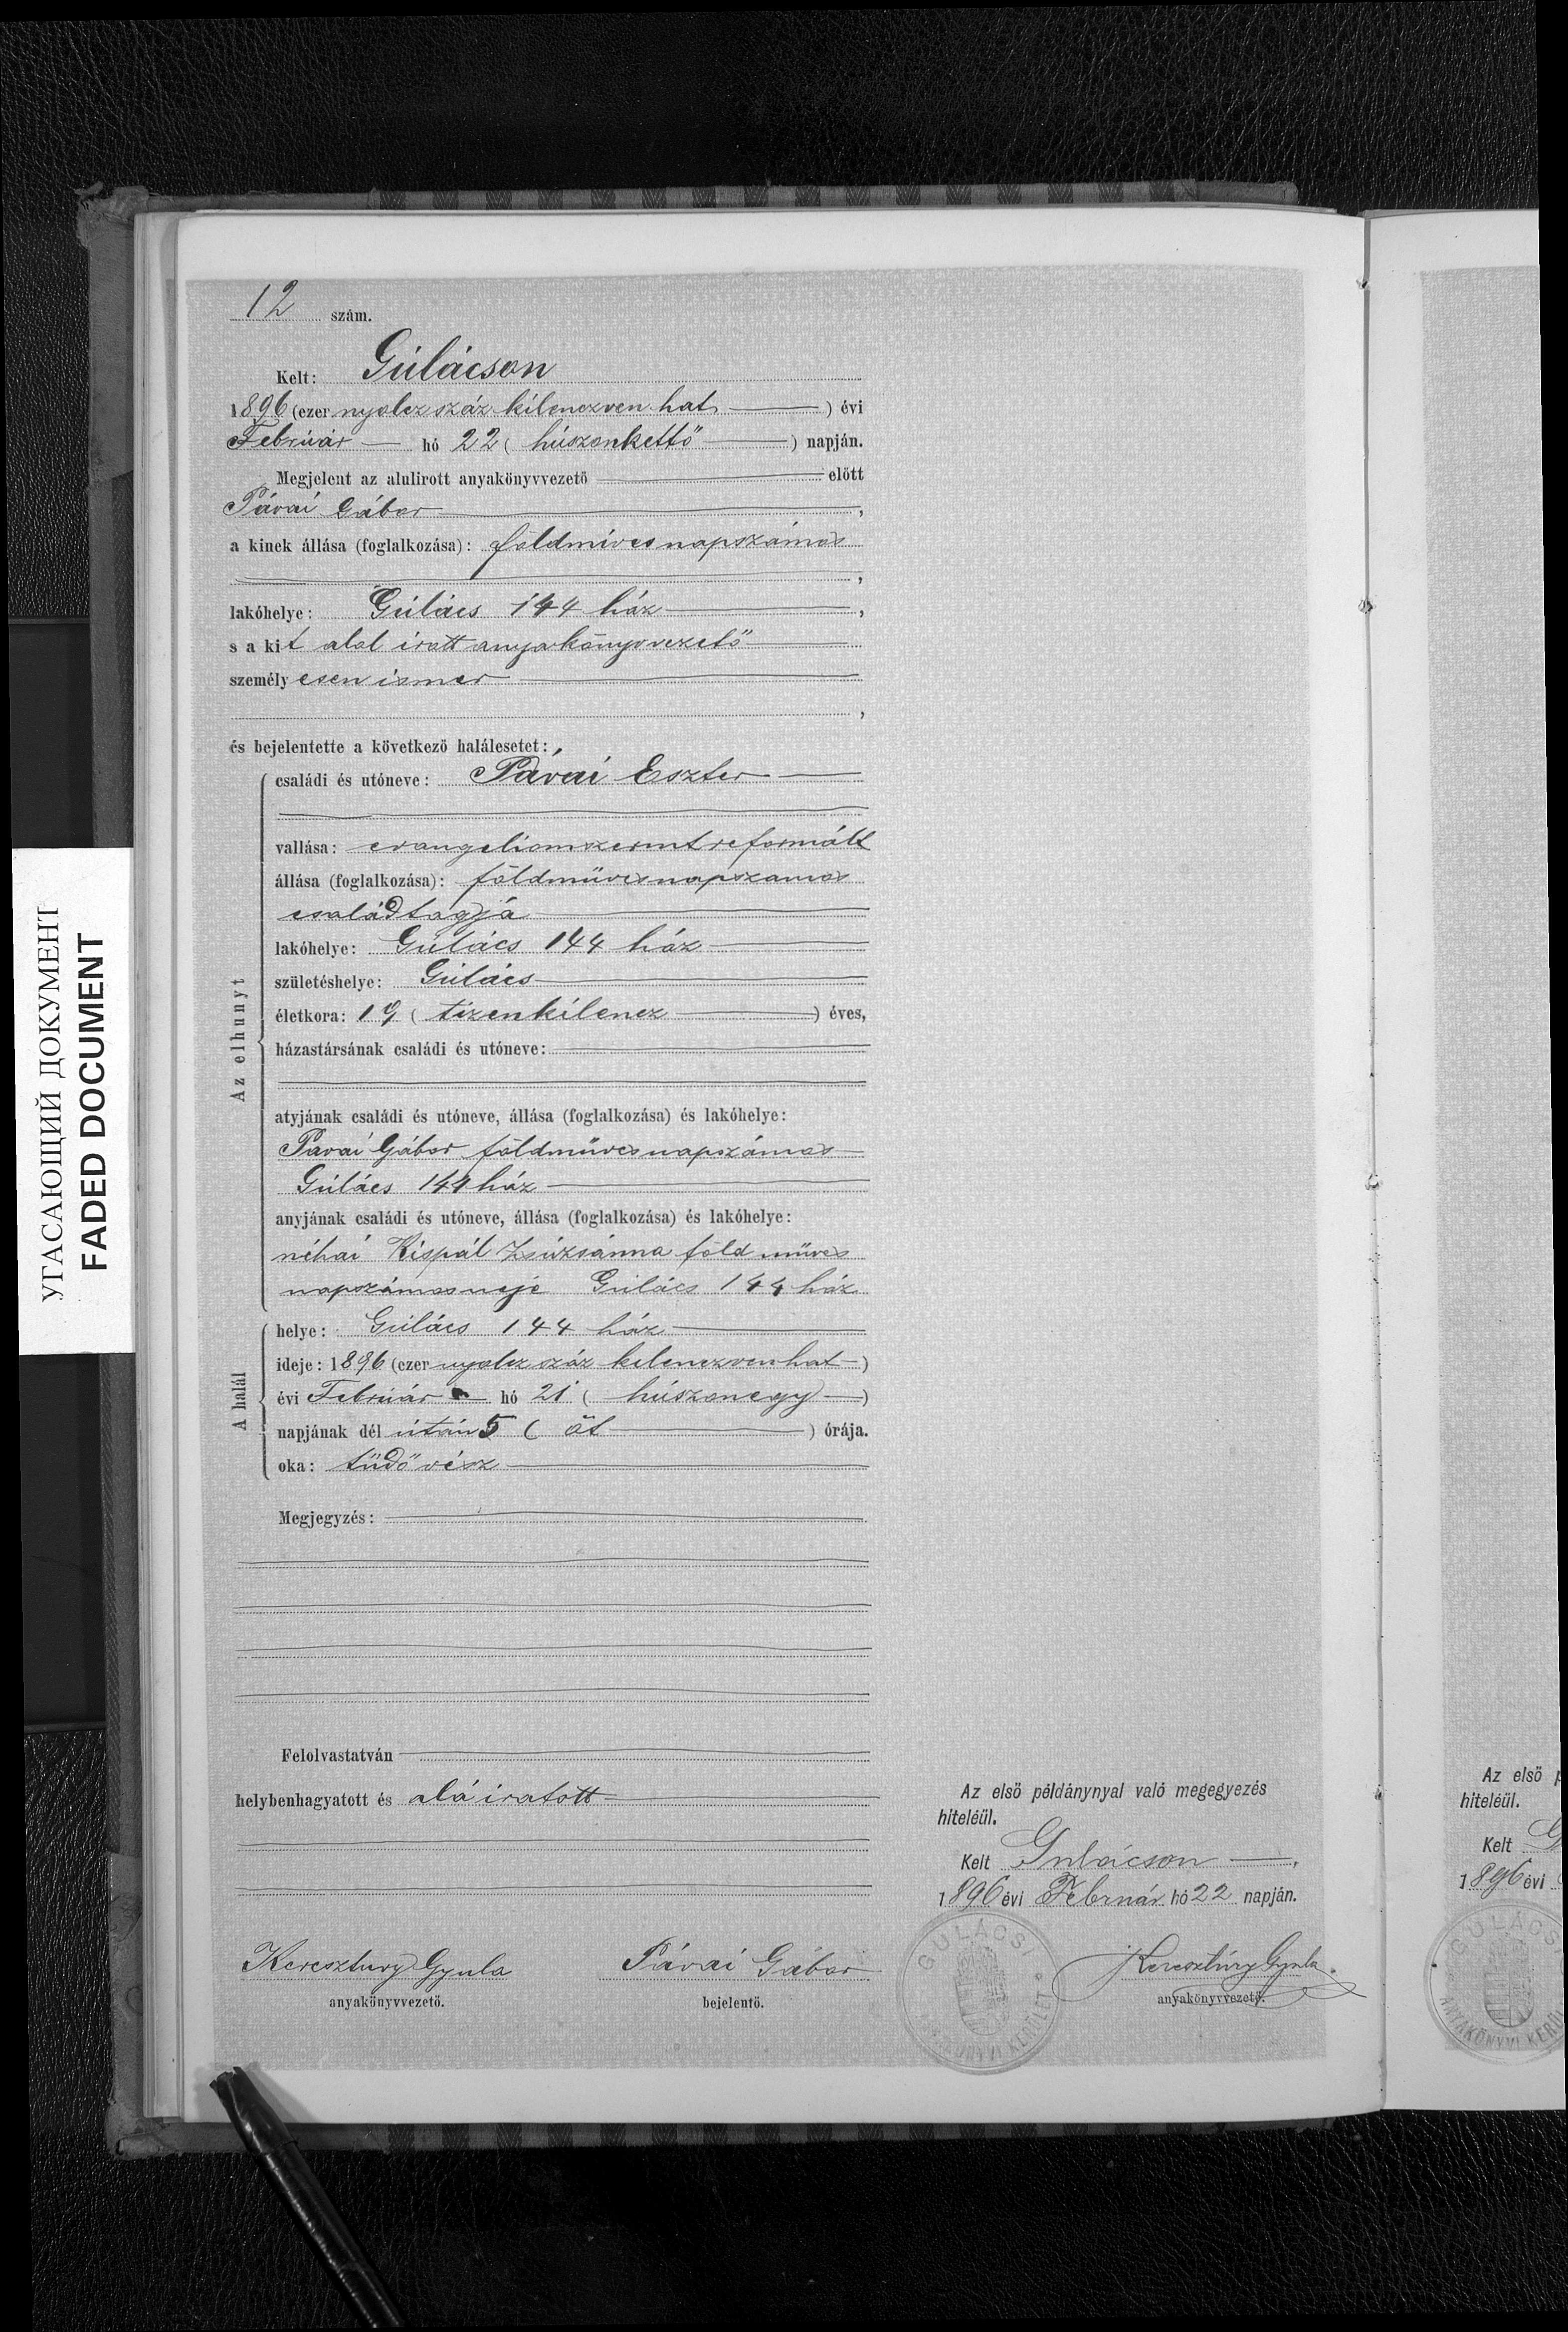 12 szám.
Kelt: Gúlácson
1896 (ezer nyolcz száz kilenczven hat ) évi
Február hó 22 ( húszonkettő ) napján.
Megjelent az alulirott anyakönyvvezető előtt
Pávai Gábor ,
a kinek állása (foglalkozása): földmíves napszámos
,
lakóhelye: Gúlács 144 ház ,
s a kit alol irott anyakönyvvezető
személy esen ismer
,
és bejelentette a következő halálesetet:
családi és utóneve: Pávai Eszter
vallása: evangeliomszerint reformált
állása (foglalkozása): földmüves napszamos
családtagjá
lakóhelye: Gúlács 144 ház
születéshelye: Gúlács
életkora: 19 ( tizenkilencz ) éves,
házastársának családi és utóneve:
atyjának családi és utóneve, állása (foglalkozása) és lakóhelye:
Pavai Gábor földmüves napszámos
Gúlács 144 ház
anyjának családi és utóneve, állása (foglalkozása) és lakóhelye:
néhai Kispál Zsúzsánna föld müves
napszámos neje Gúlács 144 ház
Az elhunyt
helye: Gúlács 144 ház
ideje: 1896 (ezer nyolcz száz kilenczven hat )
évi Február hó 21 ( húszonegy )
napjának dél útán 5 ( öt ) órája.
oka: tüdővész
A halál
Megjegyzés:
Felolvastatván
helybenhagyatott és alá iratott
Keresztury Gyula
anyakönyvvezető.
Pávai Gábor
bejelentő.
Az első példánynyal való megegyezés
hiteléül.
Kelt Gulácson .
1896 évi Február hó 22 napján.
Keresztúry Gyula
anyakönyvvezető.
GULÁCSI
ANYAKÖNYVI KERÜLET
Az első
hiteléül.
Kelt G
1896 évi
GULÁCSI
ANYAKÖNYVI KERÜL
УГАСАЮЩИЙ ДОКУМЕНТ
FADED DOCUMENT